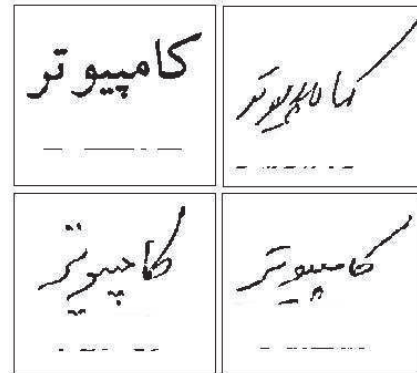 کامپیوتر
کامپیوتر
کامپیوتر
کامپیوتر